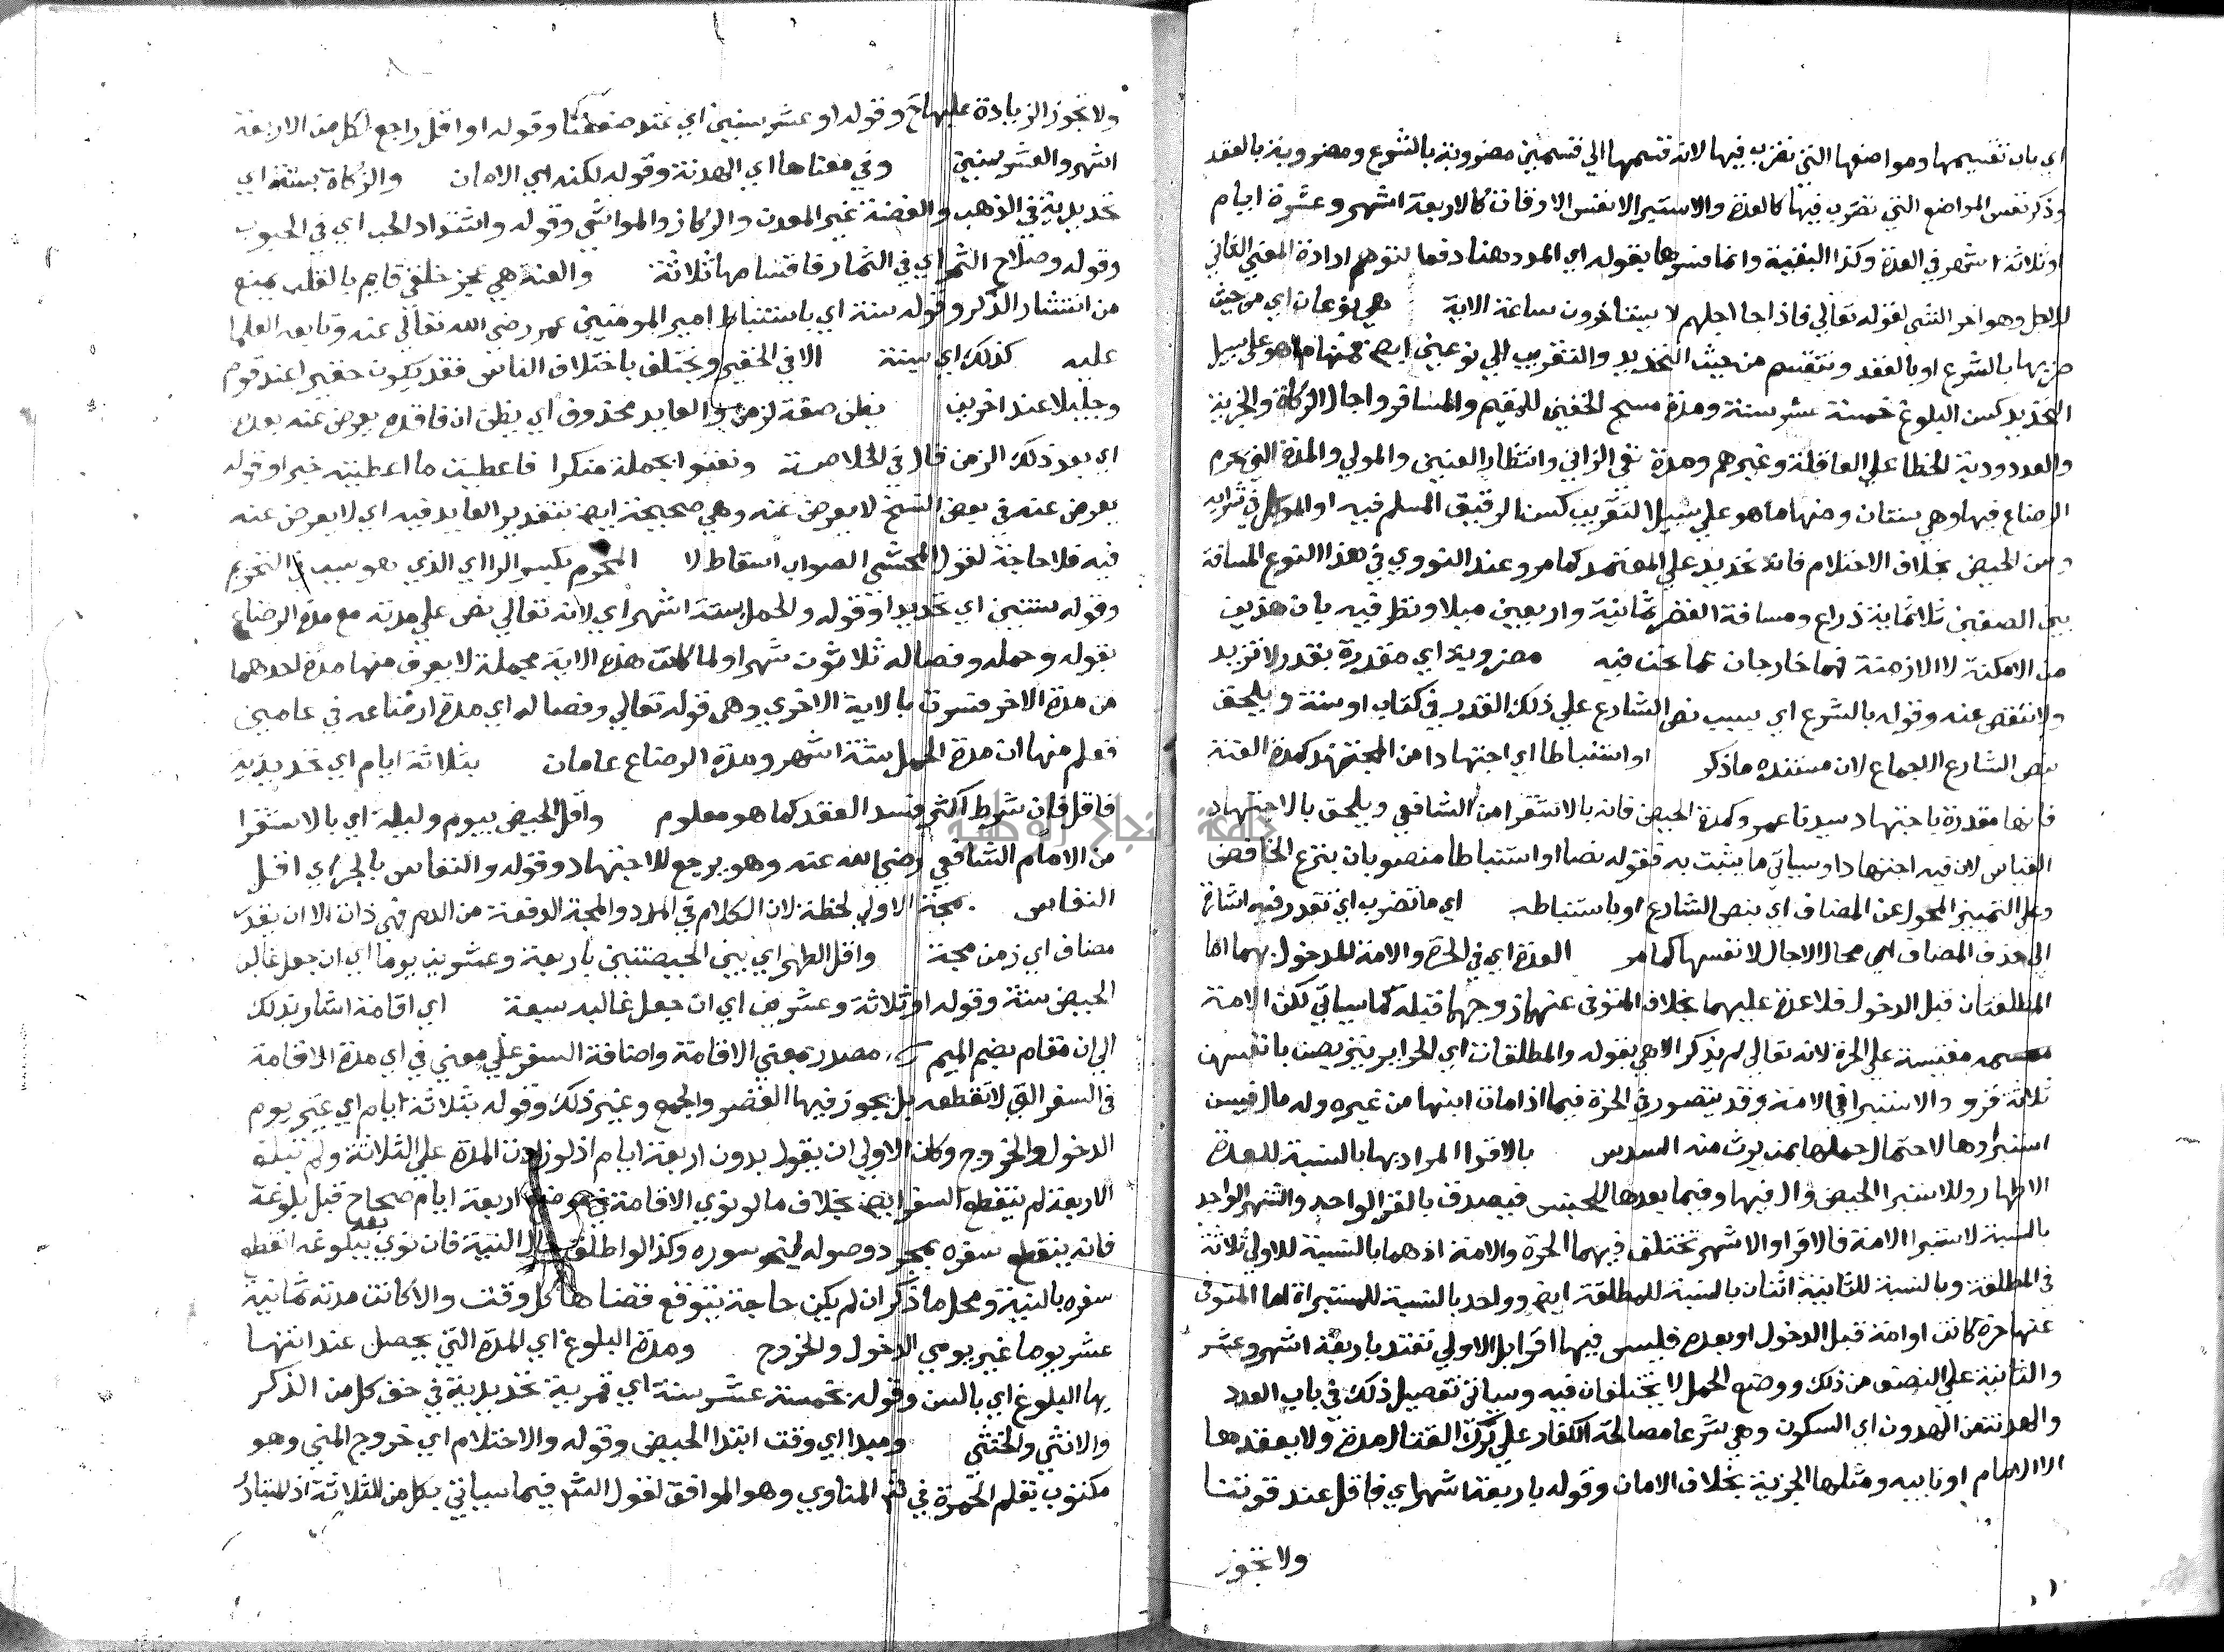 اي بيان تقسيمها ومواضعها التي تضرب فيها لانه قسمها الي قسمين مضروبة بالشرع ومضروبة بالعقد
وذكر نفس المواضع التي تضرب فيها كالعدة والاستبرا لا نفس الاوقات كالاربعة اشهر وعشرة ايام
او ثلاثة اشهر في العدة وكذا البقية وانما فسرها بقوله اي المدد هنا دفعا لتوهم ارادة المعني الثاني
للاجل وهو اخر الشي لقوله تعالي فاذا جا اجلهم لا يستاخرون ساعة الاية هي نوعان اي من حيث
ضربها بالشرع او بالعقد وتنقسم من حيث التحديد والتقريب الي نوعين ايضا منها ما هو علي سبيل
التحديد كسن البلوغ خمسة عشر سنة ومدة مسح الخفين للمقيم والمسافر واجال الزكاة والجزية
والعدد ودية الخطا علي العاقلة وغيرهم ومدة نفي الزاني وانتظار العنين والمولي والمدة التي يحرم
الرضاع فيها وهي سنتان ومنها ما هو علي سبيل التقريب كسن الرقيق المسلم فيه او الموكل في شرايه
وسن الحيض بخلاف الاحتلام فانه تحديد علي المعتمد كما مر وعند النووي في هذا النوع المسافة
بين الصفين ثلاثماية ذراع ومسافة القصر ثمانية واربعين ميلا ونظر فيه بان هذين
من الامكنة لا الازمنة فهما خارجان عما نحن فيه مضروبة اي مقدرة بقدر لا تزيد
ولا تنقص عنه وقوله بالشرع اي بسبب نص الشارع علي ذلك القدر في كتاب او سنة ويلحق
بنص الشارع الاجماع لان مستنده ما ذكر او استنباطا اي اجتهادا من المجتهد كمدة العنة
فانها مقدرة باجتهاد سيدنا عمر وكمدة الحيض فانه بالاستقرا من الشافعي ويلحق بالاجتهاد
القياس لان فيه اجتهادا وسياتي ما يثبت به فقوله نصا او استنباطا منصوبان بنزع الخافض
وعلي التمييز المحول عن المضاف اي بنص الشارع او باستنباطه اي ما تضرب اي تقدر فيه اشارة
الي حذف المضاف اي محال الاجال لا نفسها كما مر العدة اي في الحرة والامة المدخول بهما اما
المطلقتان قبل الدخول فلا عدة عليهما بخلاف المتوفي عنهما زوجهما قبله كما سياتي لكن الامة
مقيسة علي الحرة لانه تعالي لم يذكر الا هي بقوله والمطلقات اي الحراير يتربصن بانفسهن
ثلاثة قرو والاستبرا في الامة وقد يتصور في الحرة فيما اذا مات ابنها من غيره وله مال فيسن
استبراوها لاحتمال حملها بمن يرث منه السدس بالاقرا المراد بها بالنسبة للعدة
الاطهار وللاستبرا الحيض وال فيها وفيما بعدها للجنس فيصدق بالقرا الواحد والشهر الواحد
بالنسبة لاستبرا الامة فالاقرا والاشهر تختلف فيهما الحرة والامة اذ هما بالنسبة للاولي ثلاثة
في المطلقة وبالنسبة للثانية اثنان بالنسبة للمطلقة ايضا وواحد بالنسبة للمستبراة اما المتوفي
عنها حرة كانت او امة قبل الدخول او بعده فليس فيها اقرا بل الاولي تعتد باربعة اشهر وعشر
والثانية علي النصف من ذلك ووضع الحمل لا يختلفان فيه وسياتي تفصيل ذلك في باب العدد
والهدنة من الهدون اي السكون وهي شرعا مصالحة الكفار علي ترك القتال مدة ولا يعقدها
الا الامام او نايبه ومثلها الجزية بخلاف الامان وقوله باربعة اشهر اي فاقل عند قوتنا
ولا تجوز
ولا تجوز الزيادة عليها ح وقوله او عشر سنين اي عند ضعفنا وقوله او اقل راجع لكل من الاربعة
اشهر والعشر سنين وفي معناها اي الهدنة وقوله لكنه اي الامان والزكاة بسنة اي
تحديدية في الذهب والفضة غير المعدن والركاز والمواشي وقوله واشتداد الحب اي في الحبوب
وقوله وصلاح الثمر اي في الثمار فاقسامها ثلاثة والعنة هي عجز خلقي قايم بالقلب يمنع
من انتشار الذكر وقوله سنة اي باستنباط امير المومنين عمر رضي الله تعالي عنه وتابعه العلما
عليه كذلك اي سنة الا في الحقير ويختلف باختلاف الناس فقد يكون حقيرا عند قوم
وجليلا عند اخرين يظن صفة لزمن والعايد محذوف اي يظن ان فاقده يعرض عنه بعده
اي بعد ذلك الزمن قال في الخلاصة ونعتوا بجملة منكرا فاعطيت ما اعطيته خبرا وقوله
يعرض عنه في بعض النسخ لا يعرض عنه وهي صحيحة ايضا بتقدير العايد فيه اي لا يعرض عنه
فيه فلا حاجة لقول المحشي الصواب اسقاط لا المحرم بكسر الرا اي الذي هو سبب في التحريم
وقوله سنتين اي تحديدا وقوله والحمل ستة اشهر اي لانه تعالي نص علي مدته مع مدة الرضاع
بقوله وحمله وفصاله ثلاثون شهرا ولما كانت هذه الاية مجملة لا يعرف منها مدة احدهما
من مدة الاخر فسرت بالاية الاخري وهي قوله تعالي وفصاله اي مدة ارضاعه في عامين
فعلم منها ان مدة الحمل ستة اشهر ومدة الرضاع عامان بثلاثة ايام اي تحديدية
فاقل فان شرط اكثر فسد العقد كما هو معلوم واقل الحيض بيوم وليلة اي بالاستقرا
من الامام الشافعي رضي الله عنه وهو يرجع للاجتهاد وقوله والنفاس بالجر اي اقل
النفاس بمجة الاولي لحظة لان الكلام في المدد والمجة الدفعة من الدم فهي ذات الا ان يقدر
مضاف اي زمن مجة واقل الطهر اي بين الحيضتين باربعة وعشرين يوما اي ان جعل غالب
الحيض ستة وقوله او ثلاثة وعشرين اي ان جعل غالبه سبعة اي اقامة اشار بذلك
الي ان مقام بضم الميم مصدر بمعني الاقامة واضافة السفر علي معني في اي مدة الاقامة
في السفر التي لا تقطعه بل يجوز فيها القصر والجمع وغير ذلك وقوله بثلاثة ايام اي غير يوم
الدخول والخروج وكان الاولي ان يقول بدون اربعة ايام اذ لو زادت المدة علي الثلاثة ولم تبلغ
الاربعة لم ينقطع السفر ايضا بخلاف ما لو نوي الاقامة اربعة ايام صحاح قبل بلوغه
فانه ينقطع سفره بمجرد وصوله لنحو سوره وكذا لو اطلق النية فان نوي بعد بلوغه انقطع
سفره بالنية ومحل ما ذكر ان لم يكن حاجة يتوقع قضاها كل وقت والا كانت مدته ثمانية
عشر يوما غير يومي الدخول والخروج ومدة البلوغ اي المدة التي يحصل عند انتها
يها البلوغ اي بالسن وقوله بخمسة عشر سنة اي قمرية تحديدية في حق كل من الذكر
والانثي والخنثي ومبدا اي وقت ابتدا الحيض وقوله والاحتلام اي خروج المني وهو
مكتوب بقلم الحمرة في المناوي وهو الموافق لقول الشم فيما سياتي بكل من الثلاثة اذ المتبادر